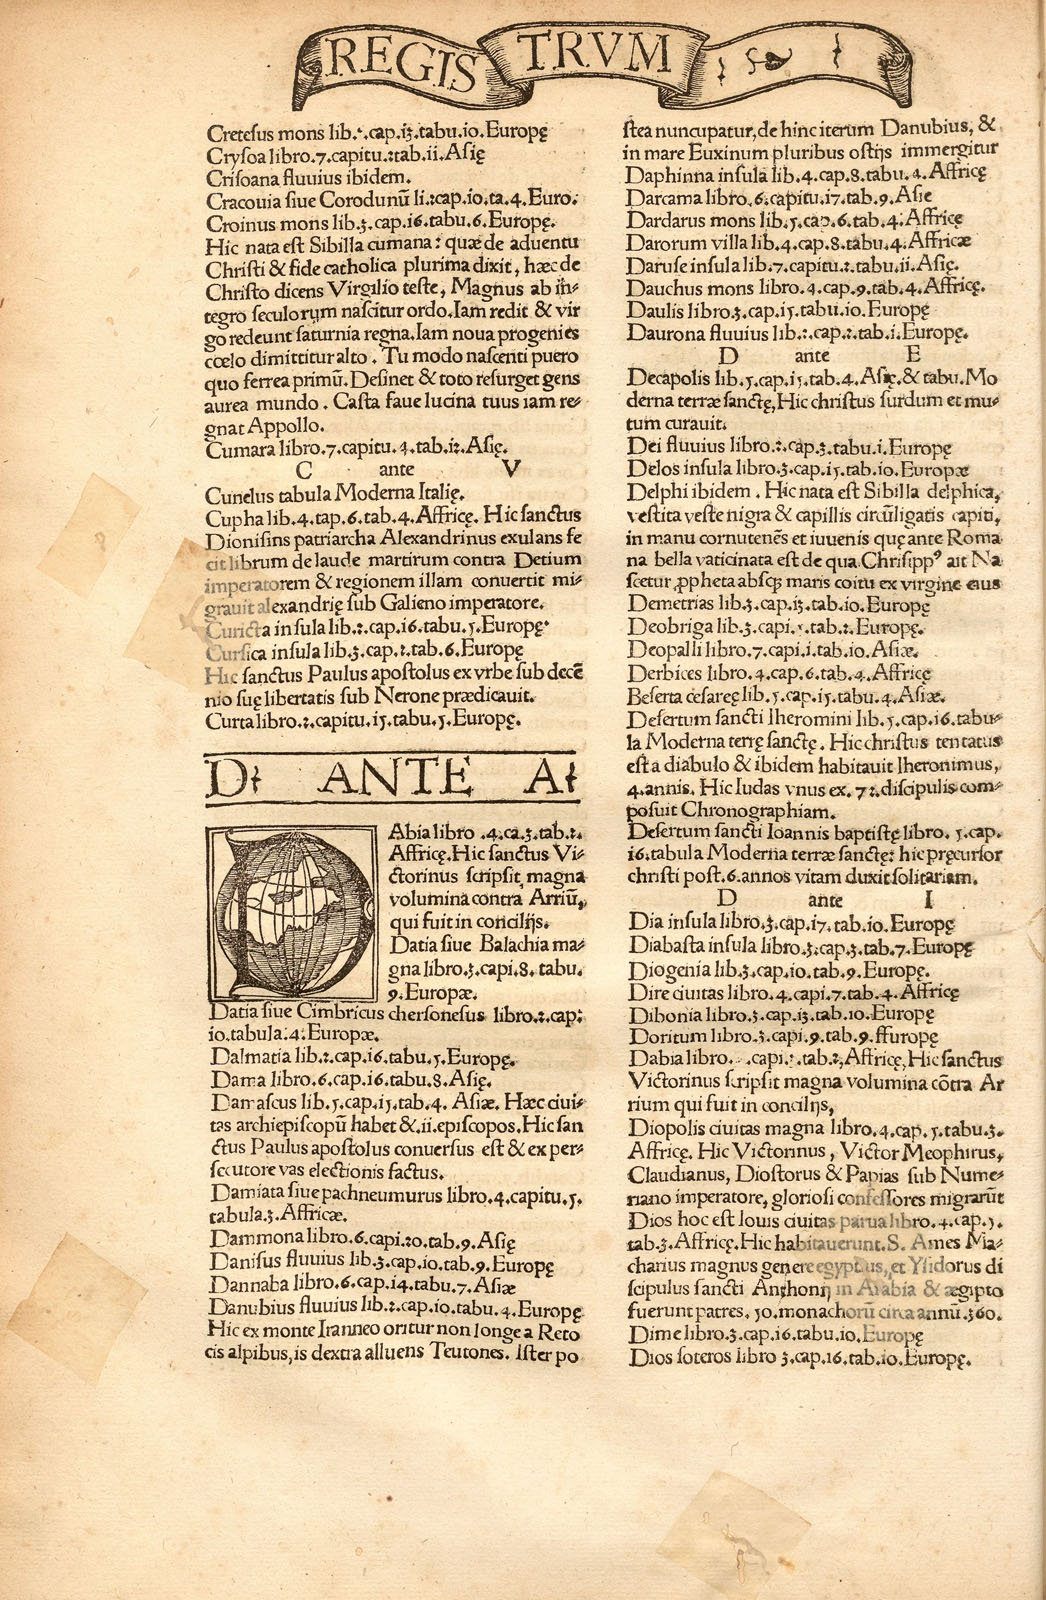 REGISTRVM
Cretesus mons lib. .cap.iꝫ.tabu.io.Europę
Crysoa libro.7.capitu.:tab.ii.Asię
Crisoana fluuius ibidem.
Cracouia siue Corodunū li.:cap.io.ta.4.Euro.
Croinus mons lib.ꝫ.cap.i6.tabu.6.Europę.
Hic nata est Sibilla cumana: quæ de aduentu
Christi & fide catholica plurima dixit, hæc de
Christo dicens Virgilio teste, Magnus ab in-
tegro seculorum nascitur ordo. Iam redit & vir
go redeunt saturnia regna. Iam noua progenies
cœlo dimittitur alto. Tu modo nascenti puero
quo ferrea primū. Desinet & toto resurget gens
aurea mundo. Casta faue lucina tuus iam re-
gnat Appollo.
Cumara libro.7.capitu.4.tab.i:.Asię.
C ante V
Cunelus tabula Moderna Italię.
Cupha lib.4.tap.6.tab.4.Affricę. Hic sanctus
Dionisins patriarcha Alexandrinus exulans fe
cit librum de laude martirum contra Detium
imperatorem & regionem illam conuertit mi-
grauit alexandrię sub Galieno imperatore.
Curicta insula lib.:.cap.i6.tabu.5.Europę.
Cursica insula lib.ꝫ.cap.:.tab.6.Europę
Hic sanctus Paulus apostolus ex vrbe sub decē
nio suę libertatis sub Nerone prædicauit.
Curta libro.:.capitu.i5.tabu.5.Europę.
D ANTE A
DAbia libro .4.ca.ꝫ.tab.:.
Affricę. Hic sanctus Vi-
ctorinus scripsit magna
volumina contra Arriū,
qui fuit in concilijs.
Datia siue Balachia ma-
gna libro.ꝫ.capi.8. tabu.
9.Europæ.
Datia siue Cimbricus chersonesus libro.:.cap:
io.tabula:4.Europæ.
Dalmatia lib.:.cap.i6.tabu.5.Europę.
Dama libro.6.cap.i6.tabu.8.Asię.
Damascus lib.5.cap.i5.tab.4. Asiæ. Hæc ciui-
tas archiepiscopū habet &.ii.episcopos. Hic san
ctus Paulus apostolus conuersus est & ex per-
secutore vas electionis factus.
Damiata siue pachneumurus libro.4.capitu.5.
tabula.ꝫ.Affricæ.
Dammona libro.6.capi:o.tab.9.Asię
Danisus fluuius lib.ꝫ.cap.io.tab.9.Europę
Dannaba libro.6.cap.i4.tabu.7.Asiæ
Danubius fluuius lib.:.cap.io.tabu.4.Europę
Hic ex monte Iranneo oritur non longe a Reto
cis alpibus, is dextra alluens Teutones. Ister po
stea nuncupatur, de hinc iterum Danubius, &
in mare Euxinum pluribus ostijs immergitur
Daphinna insula lib.4.cap.8.tabu.4.Affricę
Darcama libro.6.capitu.i7.tab.9.Asie
Dardarus mons lib.5.cap.6.tab.4.Affricę
Darorum villa lib.4.cap.8.tabu.4.Affricæ
Daruse insula lib.7.capitu.:.tabu.ii.Asię.
Dauchus mons libro.4.cap.9.tab.4.Affricę.
Daulis libro.ꝫ.cap.i5.tabu.io.Europę
Daurona fluuius lib.:.cap.:.tab.i.Europę.
D ante E
Decapolis lib.5.cap.i5.tab.4.Asię.& tabu.Mo
derna terræ sanctę, Hic christus surdum et mu-
tum curauit.
Dei fluuius libro.:.cap.ꝫ.tabu.i.Europę
Delos insula libro.ꝫ.cap.i5.tab.io.Europæ
Delphi ibidem. Hic nata est Sibilla delphica,
vestita veste nigra & capillis circūligatis capiti,
in manu cornutenēs et iuuenis quę ante Roma
na bella vaticinata est de qua Chrisippꝰ ait Na
scetur ꝓpheta absqꝫ maris coitu ex virgine eius
Demetrias lib.ꝫ.cap.iꝫ.tab.io.Europę
Deobriga lib.ꝫ.capi. .tab.:.Europę.
Deopalli libro.7.capi.i.tab.io.Asiæ.
Derbices libro.4.cap.6.tab.4.Affricę
Beserta cesareę lib.5.cap.i5.tabu.4.Asiæ.
Desertum sancti Iheromini lib.5.cap.i6.tabu-
la Moderna terrę sanctę. Hic christus tentatus
est a diabulo & ibidem habitauit Iheronimus,
4.annis. Hic Iudas vnus ex. 7:.discipulis com-
posuit Chronographiam.
Desertum sancti Ioannis baptistę libro. 5.cap.
i6.tabula Moderna terræ sanctę: hic pręcursor
christi post.6.annos vitam duxit solitariam.
D ante I
Dia insula libro.ꝫ.cap.i7.tab.io.Europę
Diabasta insula libro.ꝫ.cap.ꝫ.tab.7.Europę
Diogenia lib.ꝫ.cap.io.tab.9.Europę.
Dire ciuitas libro.4.capi.7.tab.4.Affricę
Dibonia libro.ꝫ.cap.iꝫ.tab.io.Europę
Doritum libro.ꝫ.capi.9.tab.9.ffuropę
Dabia libro. .capi.:.tab.:,Affricę, Hic sanctus
Victorinus scripsit magna volumina cōtra Ar
rium qui fuit in concilijs,
Diopolis ciuitas magna libro.4.cap. 5.tabu.ꝫ.
Affricę. Hic Victorinus, Victor Meophirus,
Claudianus, Diostorus & Papias sub Nume-
riano imperatore, gloriosi confessores migrarūt
Dios hoc est Iouis ciuitas parua libro.4.cap.5.
tab.ꝫ.Affricę. Hic habitauerunt.S. Ames Ma-
charius magnus genere egyptius, et Ysidorus di
scipulus sancti Anthonij in Arabia & ægipto
fuerunt patres. 50.monachorū circa annū.ꝫ60.
Dime libro.ꝫ.cap.i6.tabu.io.Europę
Dios soteros libro ꝫ.cap.i6.tab.io.Europę.